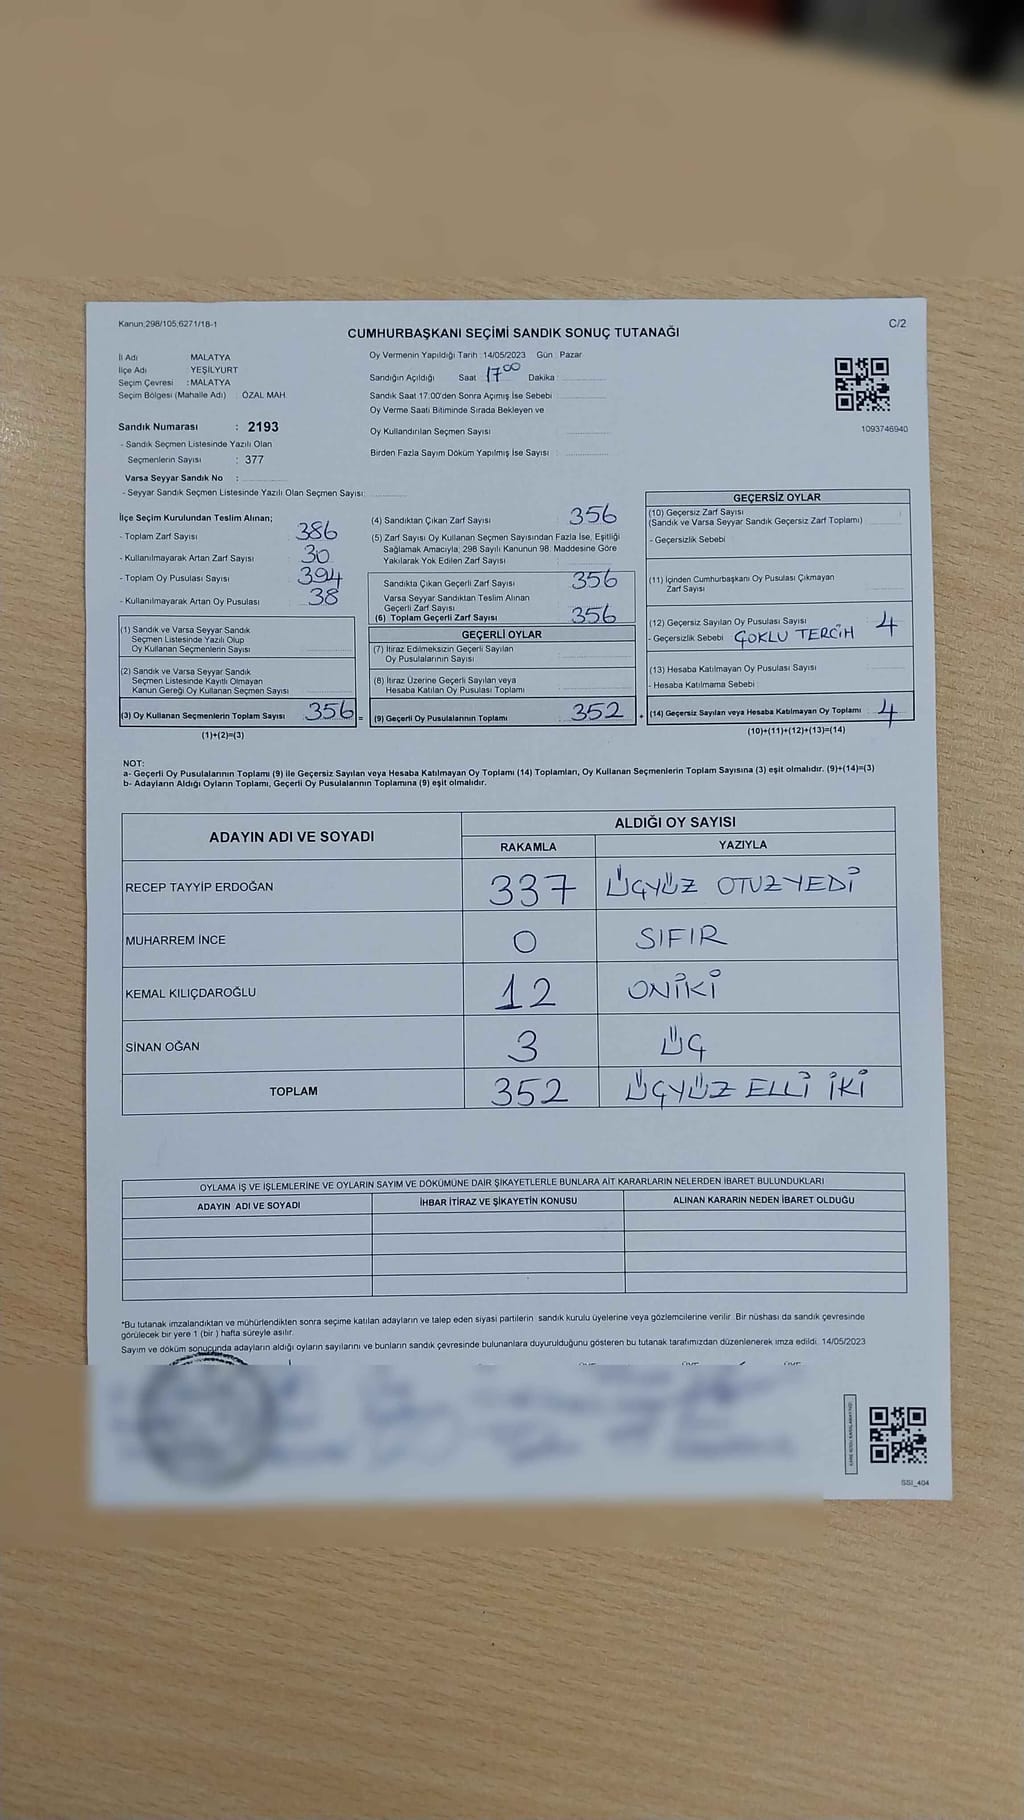 Kanun;298/105;6271/18-1
C/2
CUMHURBAŞKANI SEÇİMİ SANDIK SONUÇ TUTANAĞI
İl Adı MALATYA
İlçe Adı YEŞİLYURT
Seçim Çevresi : MALATYA
Seçim Bölgesi (Mahalle Adı) : ÖZAL MAH
Oy Vermenin Yapıldığı Tarih : 14/05/2023 Gün : Pazar
Sandığın Açıldığı Saat 17 00 Dakika :
Sandık Saat 17:00'den Sonra Açımış İse Sebebi
Oy Verme Saati Bitiminde Sırada Bekleyen ve
Oy Kullandırılan Seçmen Sayısı
Birden Fazla Sayım Döküm Yapılmış İse Sayısı :
1093746940
Sandık Numarası : 2193
- Sandık Seçmen Listesinde Yazılı Olan
Seçmenlerin Sayısı : 377
Varsa Seyyar Sandık No :
- Seyyar Sandık Seçmen Listesinde Yazılı Olan Seçmen Sayısı:
İlçe Seçim Kurulundan Teslim Alınan;
- Toplam Zarf Sayısı 386
- Kullanılmayarak Artan Zarf Sayısı 30
- Toplam Oy Pusulası Sayısı 394
- Kullanılmayarak Artan Oy Pusulası 38
(1) Sandık ve Varsa Seyyar Sandık
Seçmen Listesinde Yazılı Olup
Oy Kullanan Seçmenlerin Sayısı
(2) Sandık ve Varsa Seyyar Sandık
Seçmen Listesinde Kayıtlı Olmayan
Kanun Gereği Oy Kullanan Seçmen Sayısı
(3) Oy Kullanan Seçmenlerin Toplam Sayısı 356 =
(1)+(2)=(3)
(4) Sandıktan Çıkan Zarf Sayısı 356
(5) Zarf Sayısı Oy Kullanan Seçmen Sayısından Fazla İse, Eşitliği
Sağlamak Amacıyla, 298 Sayılı Kanunun 98. Maddesine Göre
Yakılarak Yok Edilen Zarf Sayısı
Sandıkta Çıkan Geçerli Zarf Sayısı 356
Varsa Seyyar Sandıktan Teslim Alınan
Geçerli Zarf Sayısı
(6) Toplam Geçerli Zarf Sayısı 356
GEÇERLİ OYLAR
(7) İtiraz Edilmeksizin Geçerli Sayılan
Oy Pusulalarının Sayısı
(8) İtiraz Üzerine Geçerli Sayılan veya
Hesaba Katılan Oy Pusulası Toplamı
(9) Geçerli Oy Pusulalarının Toplamı 352 +
GEÇERSİZ OYLAR
(10) Geçersiz Zarf Sayısı
(Sandık ve Varsa Seyyar Sandık Geçersiz Zarf Toplamı)
- Geçersizlik Sebebi
(11) İçinden Cumhurbaşkanı Oy Pusulası Çıkmayan
Zarf Sayısı
(12) Geçersiz Sayılan Oy Pusulası Sayısı 4
- Geçersizlik Sebebi ÇOKLU TERCİH
(13) Hesaba Katılmayan Oy Pusulası Sayısı
- Hesaba Katılmama Sebebi
(14) Geçersiz Sayılan veya Hesaba Katılmayan Oy Toplamı 4
(10)+(11)+(12)+(13)=(14)
NOT:
a- Geçerli Oy Pusulalarının Toplamı (9) ile Geçersiz Sayılan veya Hesaba Katılmayan Oy Toplamı (14) Toplamları, Oy Kullanan Seçmenlerin Toplam Sayısına (3) eşit olmalıdır. (9)+(14)=(3)
b- Adayların Aldığı Oyların Toplamı, Geçerli Oy Pusulalarının Toplamına (9) eşit olmalıdır.
ADAYIN ADI VE SOYADI ALDIĞI OY SAYISI
RAKAMLA YAZIYLA
RECEP TAYYİP ERDOĞAN 337 ÜÇYÜZ OTUZYEDİ
MUHARREM İNCE 0 SIFIR
KEMAL KILIÇDAROĞLU 12 ONİKİ
SİNAN OĞAN 3 ÜÇ
TOPLAM 352 ÜÇYÜZ ELLİ İKİ
OYLAMA İŞ VE İŞLEMLERİNE VE OYLARIN SAYIM VE DÖKÜMÜNE DAİR ŞİKAYETLERLE BUNLARA AİT KARARLARIN NELERDEN İBARET BULUNDUKLARI
ADAYIN ADI VE SOYADI İHBAR İTİRAZ VE ŞİKAYETİN KONUSU ALINAN KARARIN NEDEN İBARET OLDUĞU
*Bu tutanak imzalandıktan ve mühürlendikten sonra seçime katılan adayların ve talep eden siyasi partilerin sandık kurulu üyelerine veya gözlemcilerine verilir. Bir nüshası da sandık çevresinde
görülecek bir yere 1 (bir ) hafta süreyle asılır.
Sayım ve döküm sonucunda adayların aldığı oyların sayılarını ve bunların sandık çevresinde bulunanlara duyurulduğunu gösteren bu tutanak tarafımızdan düzenlenerek imza edildi. 14/05/2023
SSI_404